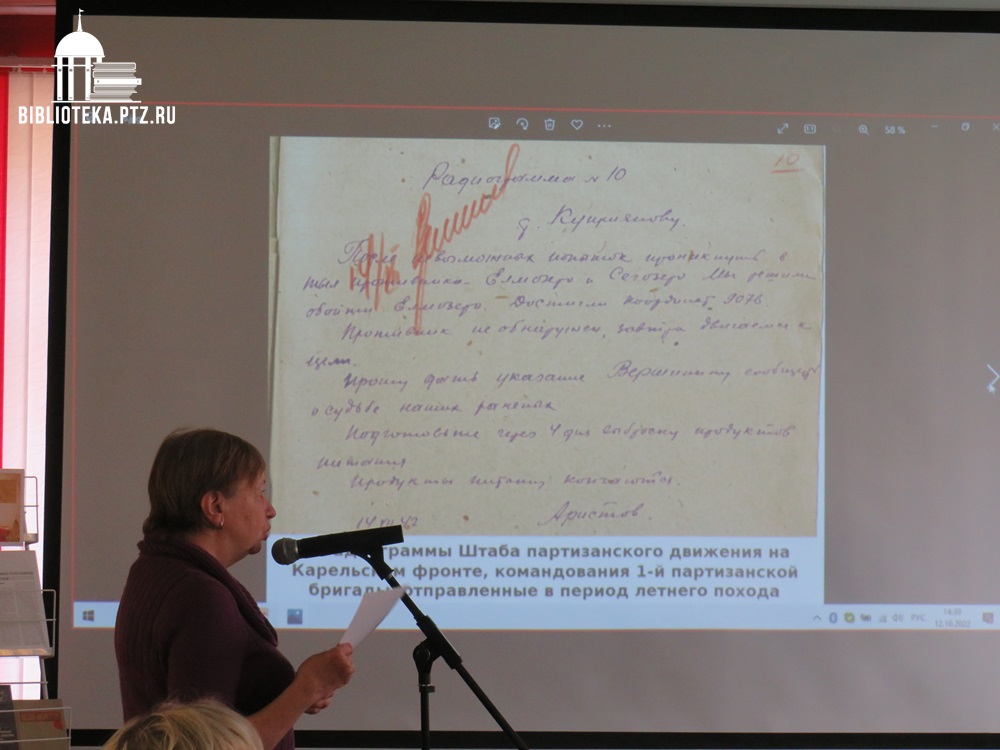 BIBLIOTEKA.PTZ.RU
58 %
10
Радиограмма № 10
т. Куприянову.
После невозможных попыток проникнуть в
тыл противника Елмозеро и Сегозеро Мы решили
обойти Елмозеро. Достигли координат 9076.
Противник не обнаружен, завтра двигаемся к
цели.
Прошу дать указание Вершинину сообщить
о судьбе наших раненых
Подготовьте через 4 дня выброску продуктов
питания
Продукты питания кончаются.
Аристов.
граммы Штаба партизанского движения на
Карельском фронте, командования 1-й партизанской
бригады, отправленные в период летнего похода
РУС
14:39
12.10.2022